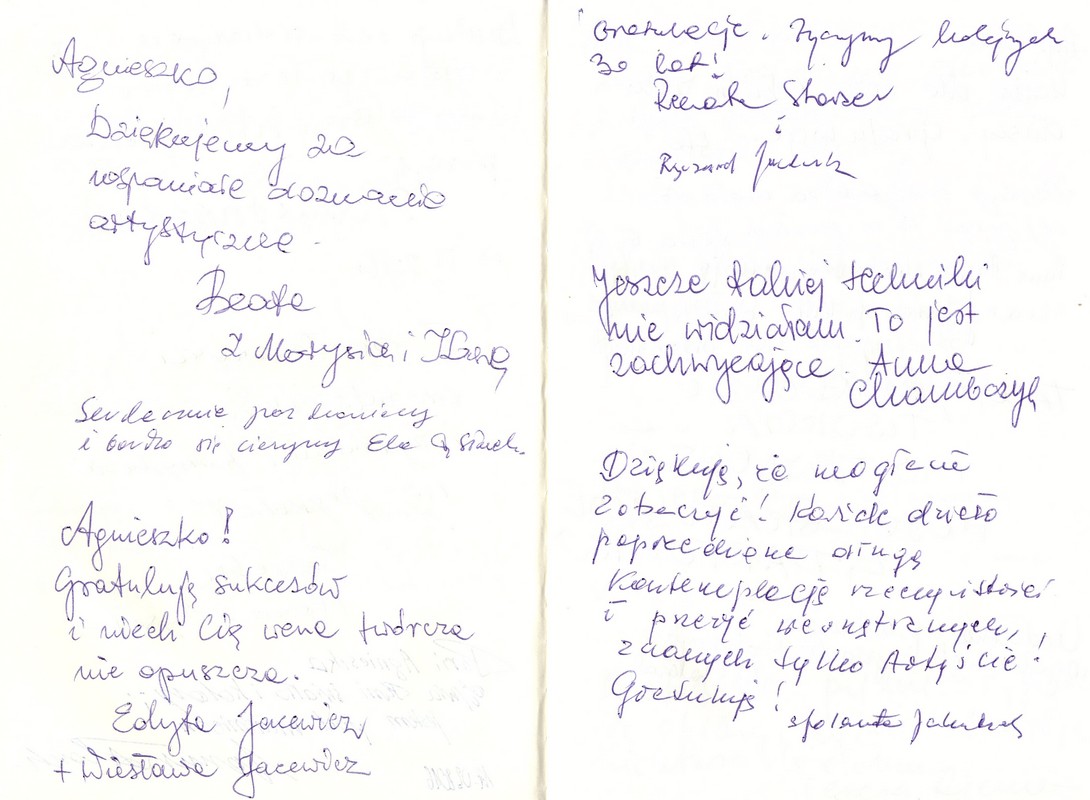 Agnieszko,
Dziękujemy za
wspaniałe doznania
artystyczne.
Beata
z Marysią i
Serdecznie pozdrawiamy
i bardzo się cieszymy Ela
Agnieszko!
Gratuluję sukcesów
i niech Cię wena twórcza
nie opuszcza.
Edyta Jacewicz
+ Wiesława Jacewicz
Gratulacje. Życzymy kolejnych
30 lat!
Renata
i
Ryszard
Jeszcze takiej techniki
nie widziałam. To jest
zachwycające. Anna
Dziękuję, że mogłam
zobaczyć! Każde dzieło
poprzedzone długą
Kontemplacją rzeczywistości
i przeżyć wewnętrznych,
znanych tylko Artyście!
Gratuluję!
Jolanta